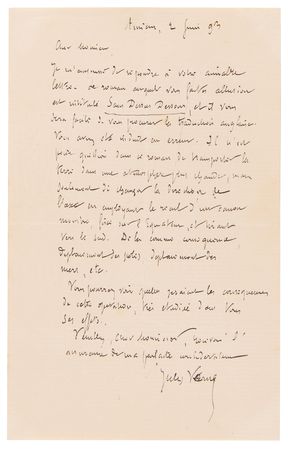 Amiens, 2 Juin 93
Cher Monsieur
Je m'empresse de répondre à votre aimable
lettre. Le roman auquel vous faites allusion
est intitulé Sans Dessus Dessous, et il vous
sera facile de vous procurer la traduction anglaise.
Vous avez été induit en erreur. Il n'est
point question dans ce roman de transporter la
terre dans une atmosphère plus chaude, mais
seulement de changer la direction de
l'axe en employant le recul d'un canon
monstre, fixé sur l'Équateur et tirant
vers le sud. De là comme conséquence,
déplacement des pôles, déplacement des
mers, etc.
Vous pourrez voir quelles seraient les conséquences
de cette opération, très étudiée dans tous
ses effets.
Veuillez, cher Monsieur, recevoir l'
assurance de ma parfaite considération
Jules Verne